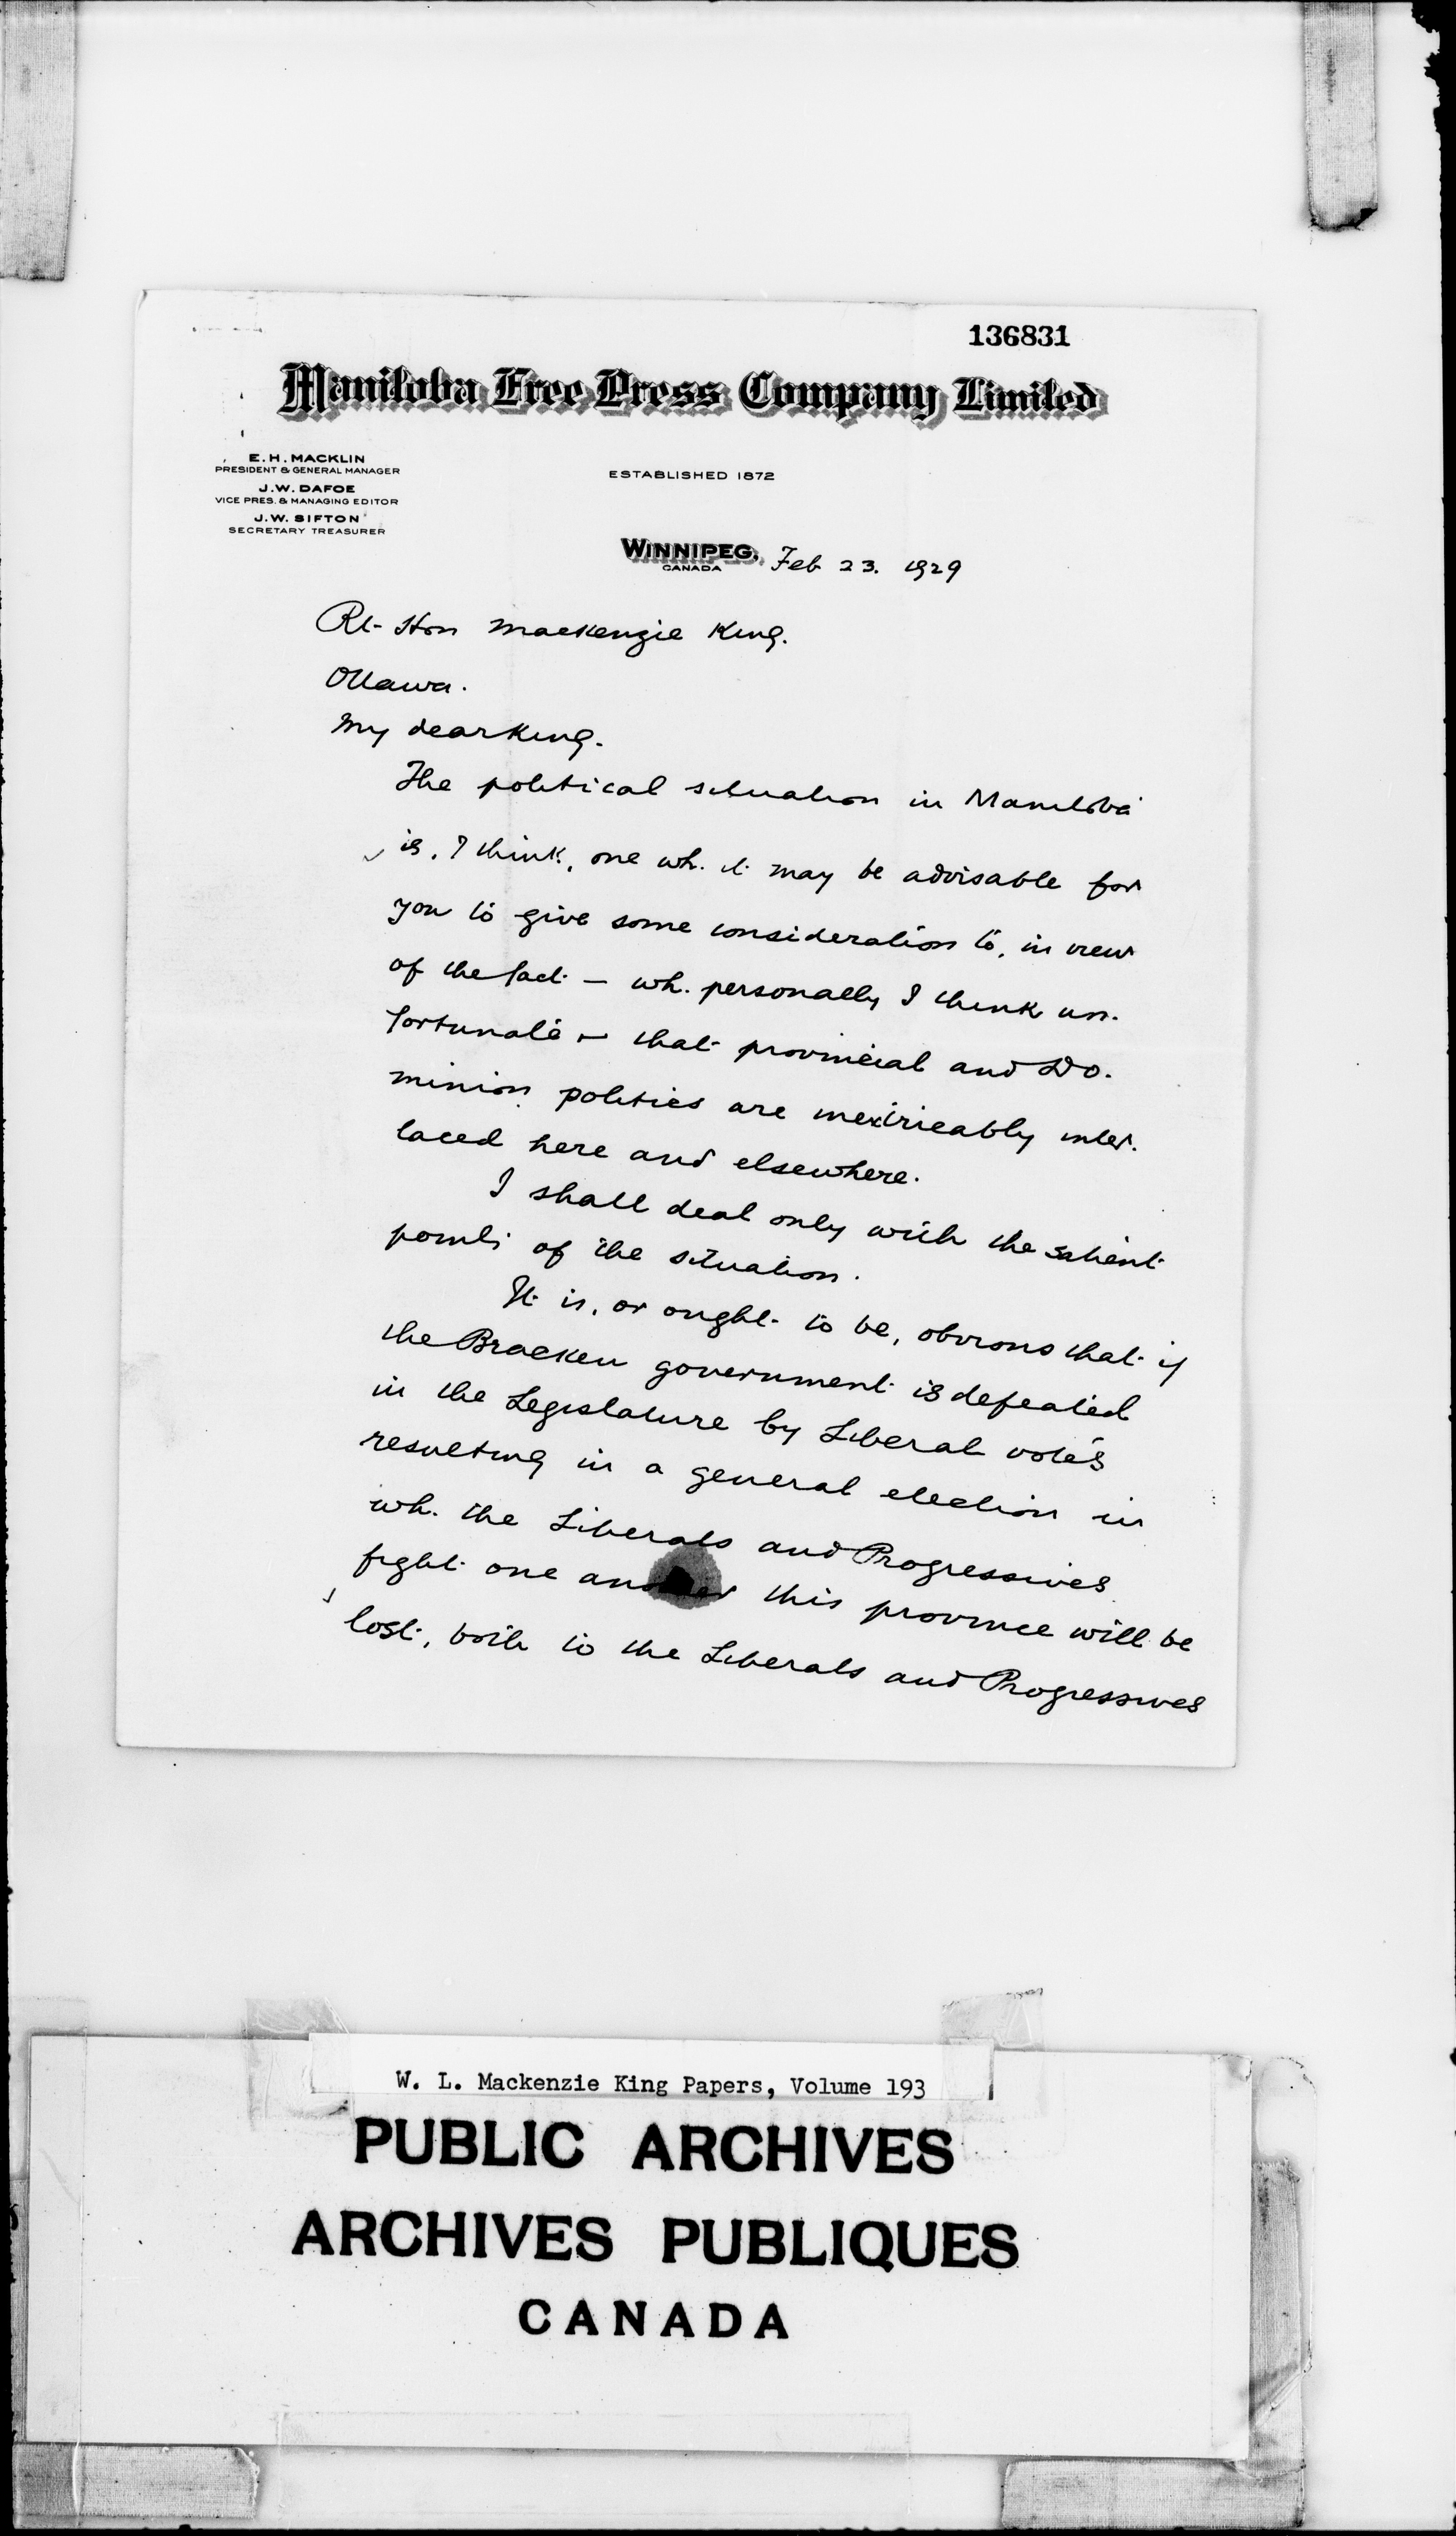 136831
Manitoba Free Press Company Limited
E. H. MACKLIN
PRESIDENT & GENERAL MANAGER
J. W. DAFOE
VICE PRES. & MANAGING EDITOR
J. W. SIFTON
SECRETARY TREASURER
ESTABLISHED 1872
WINNIPEG,
CANADA
Feb 23. 1929
Rt- Hon Mackenzie King.
Ottawa.
My dear King.
The political situation in Manitoba
is, I think, one wh. it may be advisable for
you to give some consideration to, in view
of the fact - wh. personally I think un-
fortunate - that provincial and Do-
minion politics are inextricably inter-
laced here and elsewhere.
I shall deal only with the salient
points of the situation.
It is, or ought to be, obvious that if
the Bracken government is defeated
in the Legislature by Liberal votes
resulting in a general election in
wh. the Liberals and Progressives
fight one another this province will be
lost, both to the Liberals and Progressives
W. L. Mackenzie King Papers, Volume 193
PUBLIC ARCHIVES
ARCHIVES PUBLIQUES
CANADA